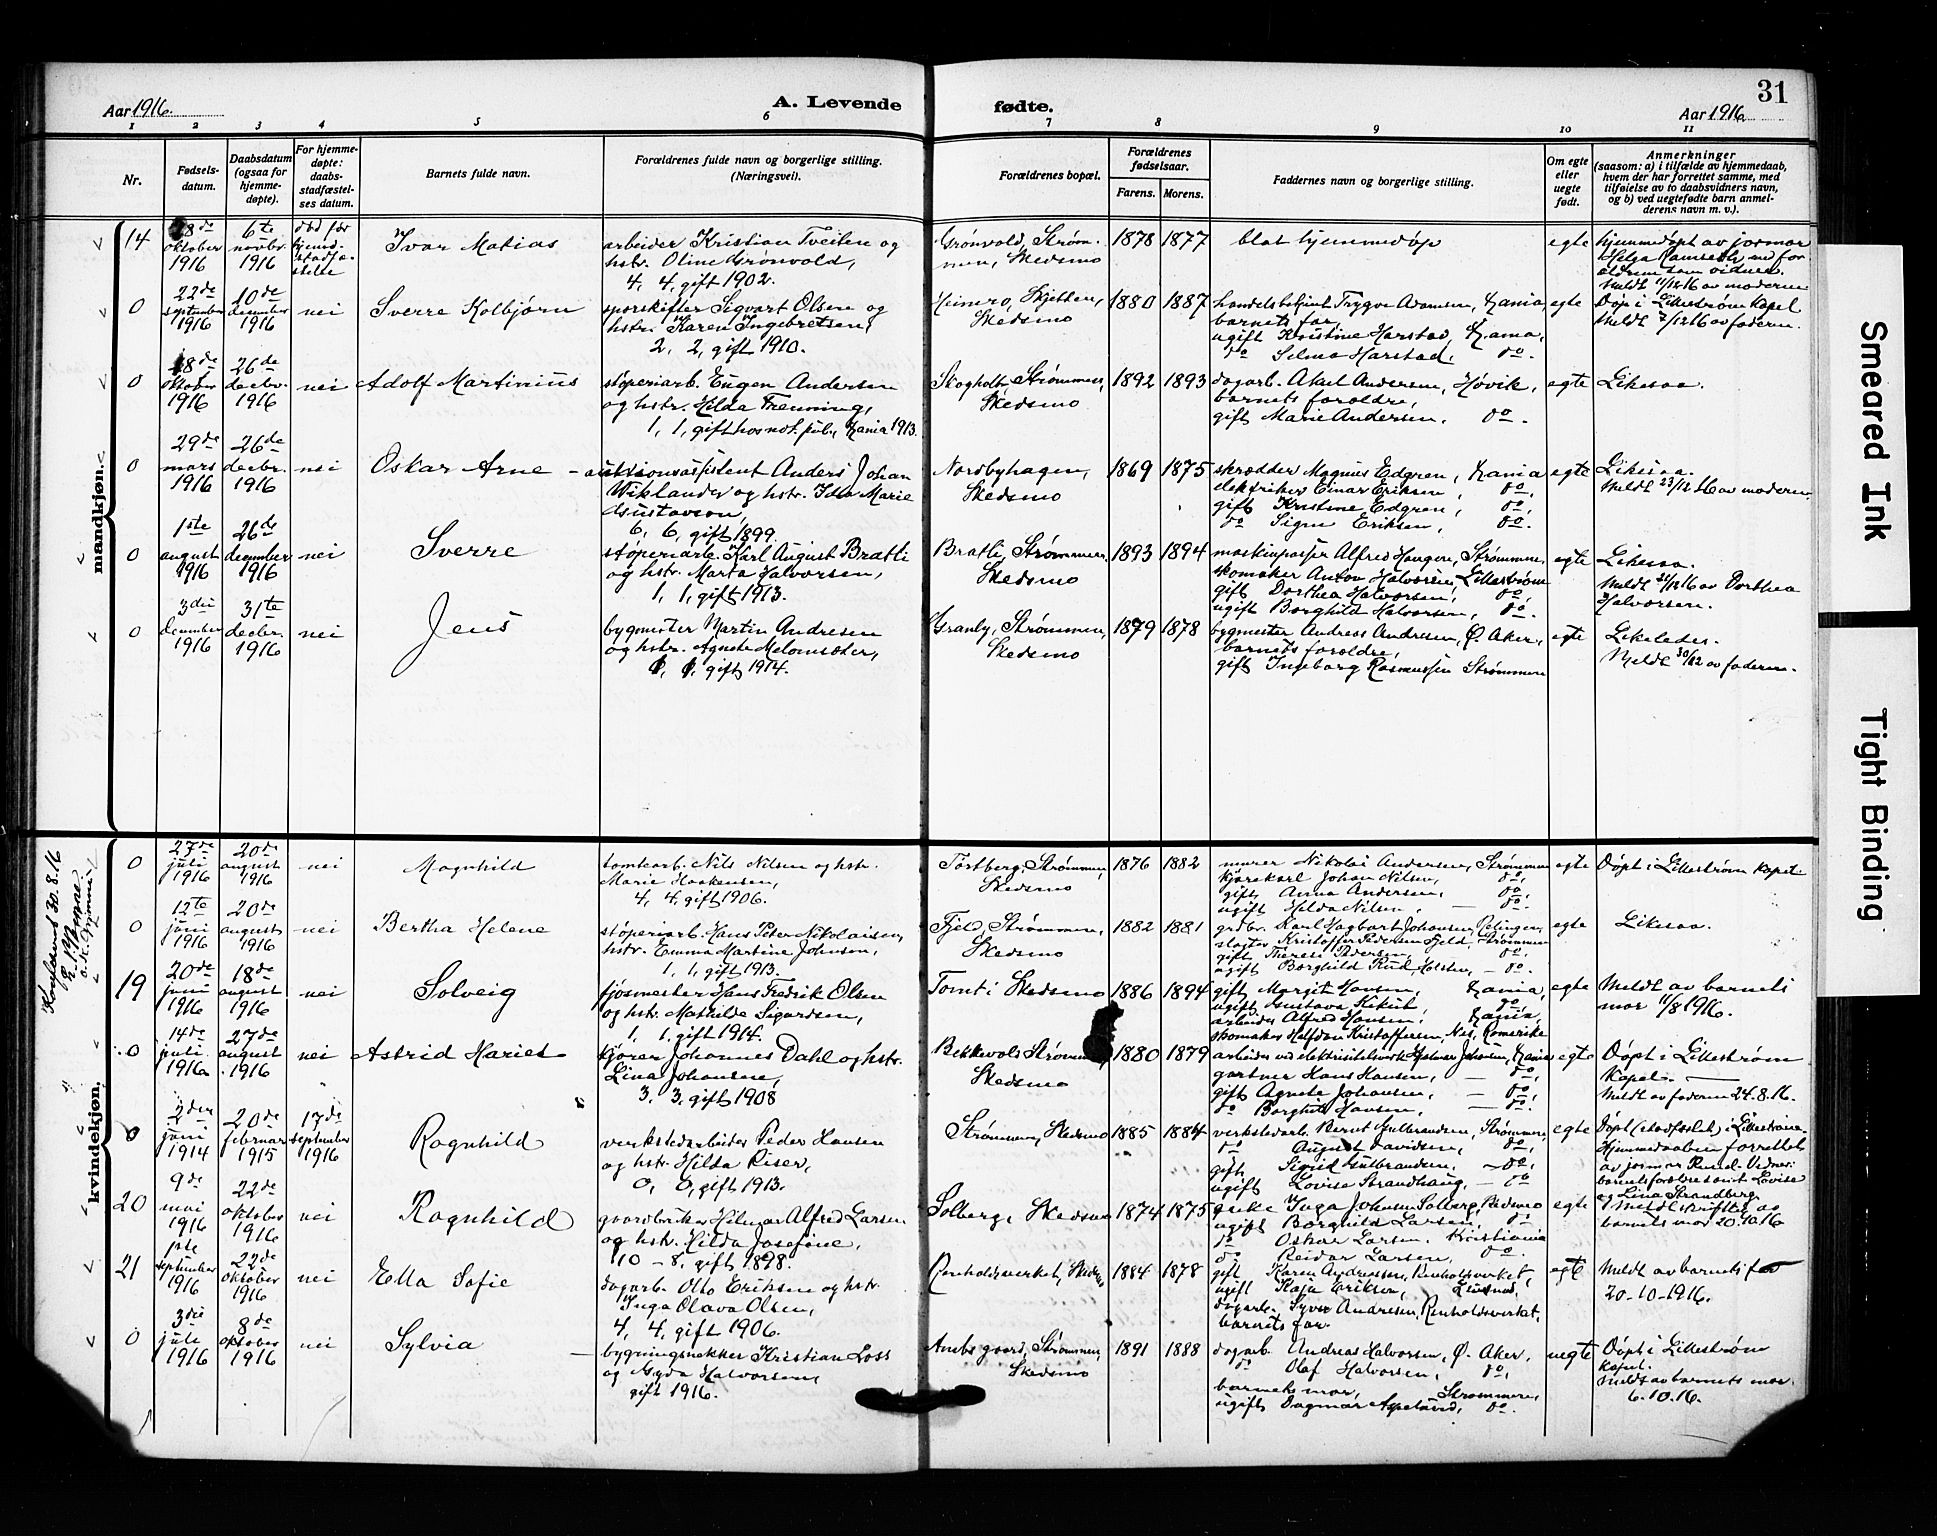 31
Aar 1916
A. Levende fødte.
Aar 1916
1 2 3 4 5 6 7 8 9 10 11
Nr.
Fødsels-
datum.
Daabsdatum
(ogsaa for
hjemme-
døpte).
For hjemme-
døpte:
daabs-
stadfæstel-
ses datum.
Barnets fulde navn.
Forældrenes fulde navn og borgerlige stilling.
(Næringsvei).
Forældrenes bopæl.
Forældrenes
fødselsaar.
Farens. Morens.
Faddernes navn og borgerlige stilling.
Om egte
eller
uegte
født.
Anmerkninger
(saasom: a) i tilfælde av hjemmedaab,
hvem der har forrettet samme, med
tilføielse av to daabsvidners navn,
og b) ved uegtefødte barn anmel-
derens navn m. v.).
mandkjøn.
14
oktober
1916
6te
novbr.
1916
Ivar Matias
arbeider Kristian Tveiten og
hstr. Oline Grønvold,
4, 4, gift 1902.
Grønvold, Strøm-
men, Skedsmo
1878 1877
blot hjemmedøp
egte
hjemmedøpt av jormor
Meldt 11/12 16 av moderen
0
22de
september
1916
10de
december
1916
nei
Sverre Kolbjørn
sporskifter Sigvart Olsen og
hstr. Karen Ingebretsen,
2, 2, gift 1910.
Skjetten,
Skedsmo
1880 1887
Trygve Adamsen, Krania,
barnets far,
ugift Kristine Harstad, Krania,
do Selma Harstad, do.
egte
Døpt i Lillestrøm kapel
Meldt 7/12 16 av faderen.
0
oktober
1916
26de
decbr.
1916
nei
Adolf Martinius
støperiarb. Eugen Andersen
og hstr. Hilda Frenning,
1, 1, gift hos not. pub., Krania 1913.
Skogholt, Strømmen,
Skedsmo
1892 1893
dagarb. Aksel Andersen, Høvik,
barnets foreldre,
gift Marie Andersen, do.
egte
Likesaa.
0
29de
mars
1916
26de
decbr.
1916
nei
Oskar Arne
auktionsassistent Anders Johan
Wiklander og hstr. Ida Marie
Gustavson,
6, 6, gift 1899.
Nordbyhagen,
Skedsmo
1869 1875
skrædder Magnus Edgren, Krania
elektriker Einar Eriksen, do,
gift Kristine Edgren, do,
do Signe Eriksen, do.
egte
Likesaa.
Meldt 23/12 16 av moderen
0
1ste
august
1916
26de
december
1916
nei
Sverre
støperiarb. Karl August Bratli
og hstr. Marta Halvorsen,
1, 1, gift 1913.
Bratli, Strømmen,
Skedsmo
1893 1894
maskinpasser Alfred Haugen, Strømmen,
skomaker Anton Halvorsen, Lillestrøm
gift Dorthea Halvorsen, do,
ugift Borghild Halvorsen, do.
egte
Likesaa.
av Dorthea
Halvorsen.
0
3die
december
1916
31te
decbr.
1916
nei
Jens
bygmester Martin Andresen
og hstr. Agnete Melomsæter,
gift 1914.
Granly, Strømmen,
Skedsmo
1879 1878
bygmester Andreas Andresen, Ø. Aker,
barnets foreldre,
gift Ingeborg Rasmussen Strømmen
egte
Likeledes.
Meldt 30/12 av faderen.
kvindekjøn.
0
27de
juli
1916
20de
august
1916
nei
Magnhild
tomtearb. Nils Nilsen og hstr.
Marie Haakensen,
4, 4, gift 1906.
Torstberg, Strømmen,
Skedsmo
1876 1882
murer Nikolai Andersen, Strømmen
kjørekarl Johan Nilsen, do,
gift Anna Andersen, do,
ugift Helda Nilsen, — do.
egte
Døpt i Lillestrøm kapel
0
12te
juni
1916
20de
august
1916
nei
Bertha Helene
støperiarb. Hans Peter Nikolaisen,
hstr. Emma Martine Johnsen,
1, 1, gift 1913.
Fjeld, Strømmen,
Skedsmo
1882 1881
grdbr. Karl Hagbart Johansen,
slagter Kristoffer Pedersen Fjeld Strømmen
gift Therese Pedersen, do,
ugift Borghild Rud Holster, — do.
egte
Likesaa.
19
20de
juni
1916
18de
august
1916
nei
Solveig
fjøsmester Hans Fredrik Olsen
og hstr. Mathilde Sigurdsen,
1, 1, gift 1914.
Tomt i Skedsmo
1886 1894
gift Margit Hansen, Krania,
ugift Gustava Kikut, do,
arbeider Alfred Hansen, Krania,
skomaker Halfdan Kristoffersen, Nes, Romerike
egte
Meldt av barnets
mor 11/8 1916.
0
14de
juli
1916
27de
august
1916
nei
Astrid Hariet
kjører Johannes Dahl og hstr.
Lina Johansen,
3, 3, gift 1908
Bekkevold, Strømmen
Skedsmo
1880 1879
gartner Hans Hansen, — do,
gift Agnete Johansen, — do,
do Borghild Hansen, — do.
egte
Døpt i Lillestrøm
kapel. —
Meldt av faderen 24.8.16.
0
2den
juni
1914
20de
februar
1915
17de
september
1916
Ragnhild
verkstedarbeider Peder Hansen
og hstr. Hilda Riser,
0, 0, gift 1913.
Strømmen, Skedsmo
1885 1884
verkstedarb. Bernt Gulbrandsen, Strømmen,
do August Davidsen, do,
gift Sigrid Gulbrandsen, — do,
ugift Lovise Strandhaug, — do
egte
Døpt (stadfæstet) i Lillestrøm.
Hjemmedaaben forrettet
av jormor Ruud. Vidner:
barnets forældre samt Lovise
og Lina Strandberg.
20
9de
mai
1916
22de
oktober
1916
nei
Ragnhild
gaardbruker Hilmar Alfred Larsen
og hstr. Hilda Josefine,
10 – 8, gift 1898.
Solberg, Skedsmo
1874 1875
enke Inga Johansen Solberg, Skedsmo
ugift Borghild Larsen, do
do Oskar Larsen, Kristiania
do Reidar Larsen, do.
egte
Meldt skriftlig av
barnets mor 20.10.16
21
1ste
september
1916
22de
oktober
1916
nei
Ella Sofie
dagarb. Otto Eriksen og hstr.
Inga Olava Olsen,
4, 4, gift 1906.
Renholdsverket, Skedsmo
1884 1878
gift Karen Andreassen, Renholdsverket,
ugift Kaja Eriksen,
dagarb. Syver Andresen, Renholdsverket,
barnets far.
egte
Meldt av barnets far
20–10–1916.
0
3die
juli
1916
8de
oktober
1916
nei
Sylvia
bygningssnekker Kristian Loss
og Agda Halvorsen,
gift 1916.
Strømmen,
Skedsmo
1891 1888
dagarb. Andreas Halvorsen, Ø. Aker,
do Olaf Halvorsen, do,
barnets mor, Strømmen,
ugift Dagmar Aspelund, do.
uegte
Døpt i Lillestrøm
kapel.
Meldt av barnets mor
6.10.16.
Smeared Ink
Tight Binding